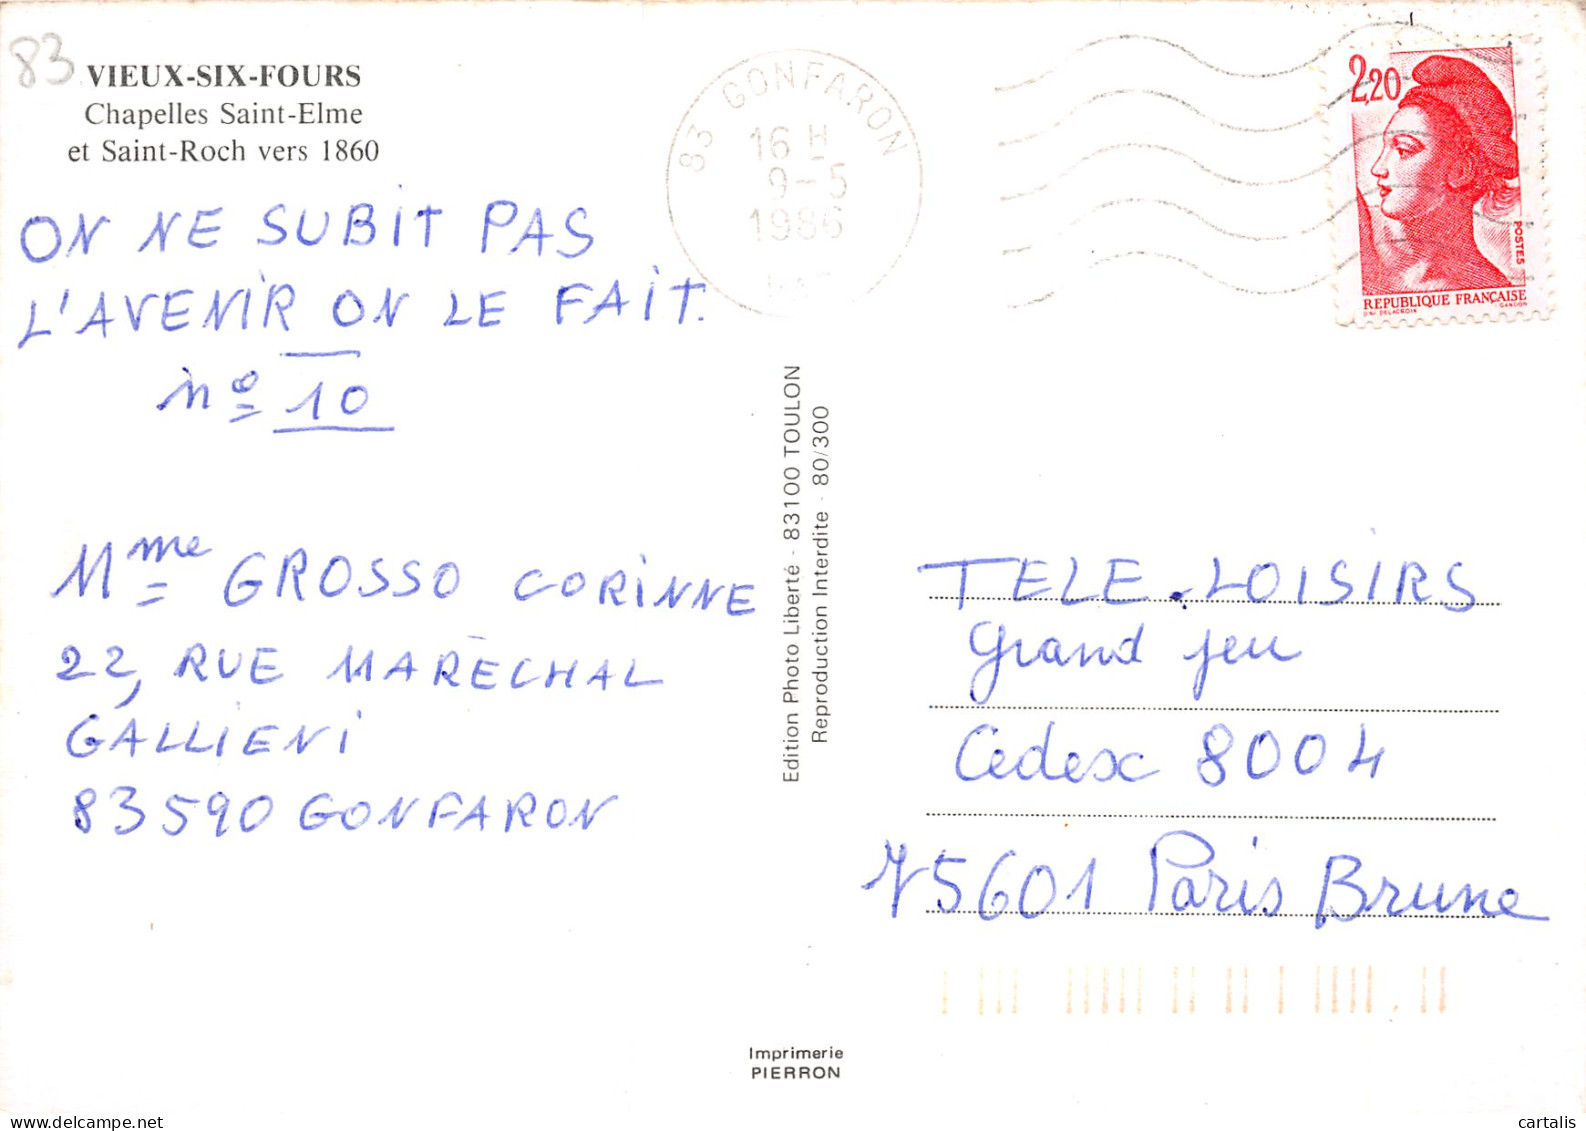 83
VIEUX-SIX-FOURS
Chapelles Saint-Elme
et Saint-Roch vers 1860
ON NE SUBIT PAS
L'AVENIR ON LE FAIT.
nº 10
Mme GROSSO CORINNE
22, RUE MARÉCHAL
GALLIENI
83590 GONFARON
83 GONFARON
16 H
9-5
1986
2,20
POSTES
REPUBLIQUE FRANÇAISE
D'AP. DELACROIX GANDON
Edition Photo Liberté - 83100 TOULON
Reproduction Interdite - 80/300
TELE-LOISIRS
Grand jeu
Cedex 8004
75601 Paris Brune
Imprimerie
PIERRON
cartalis